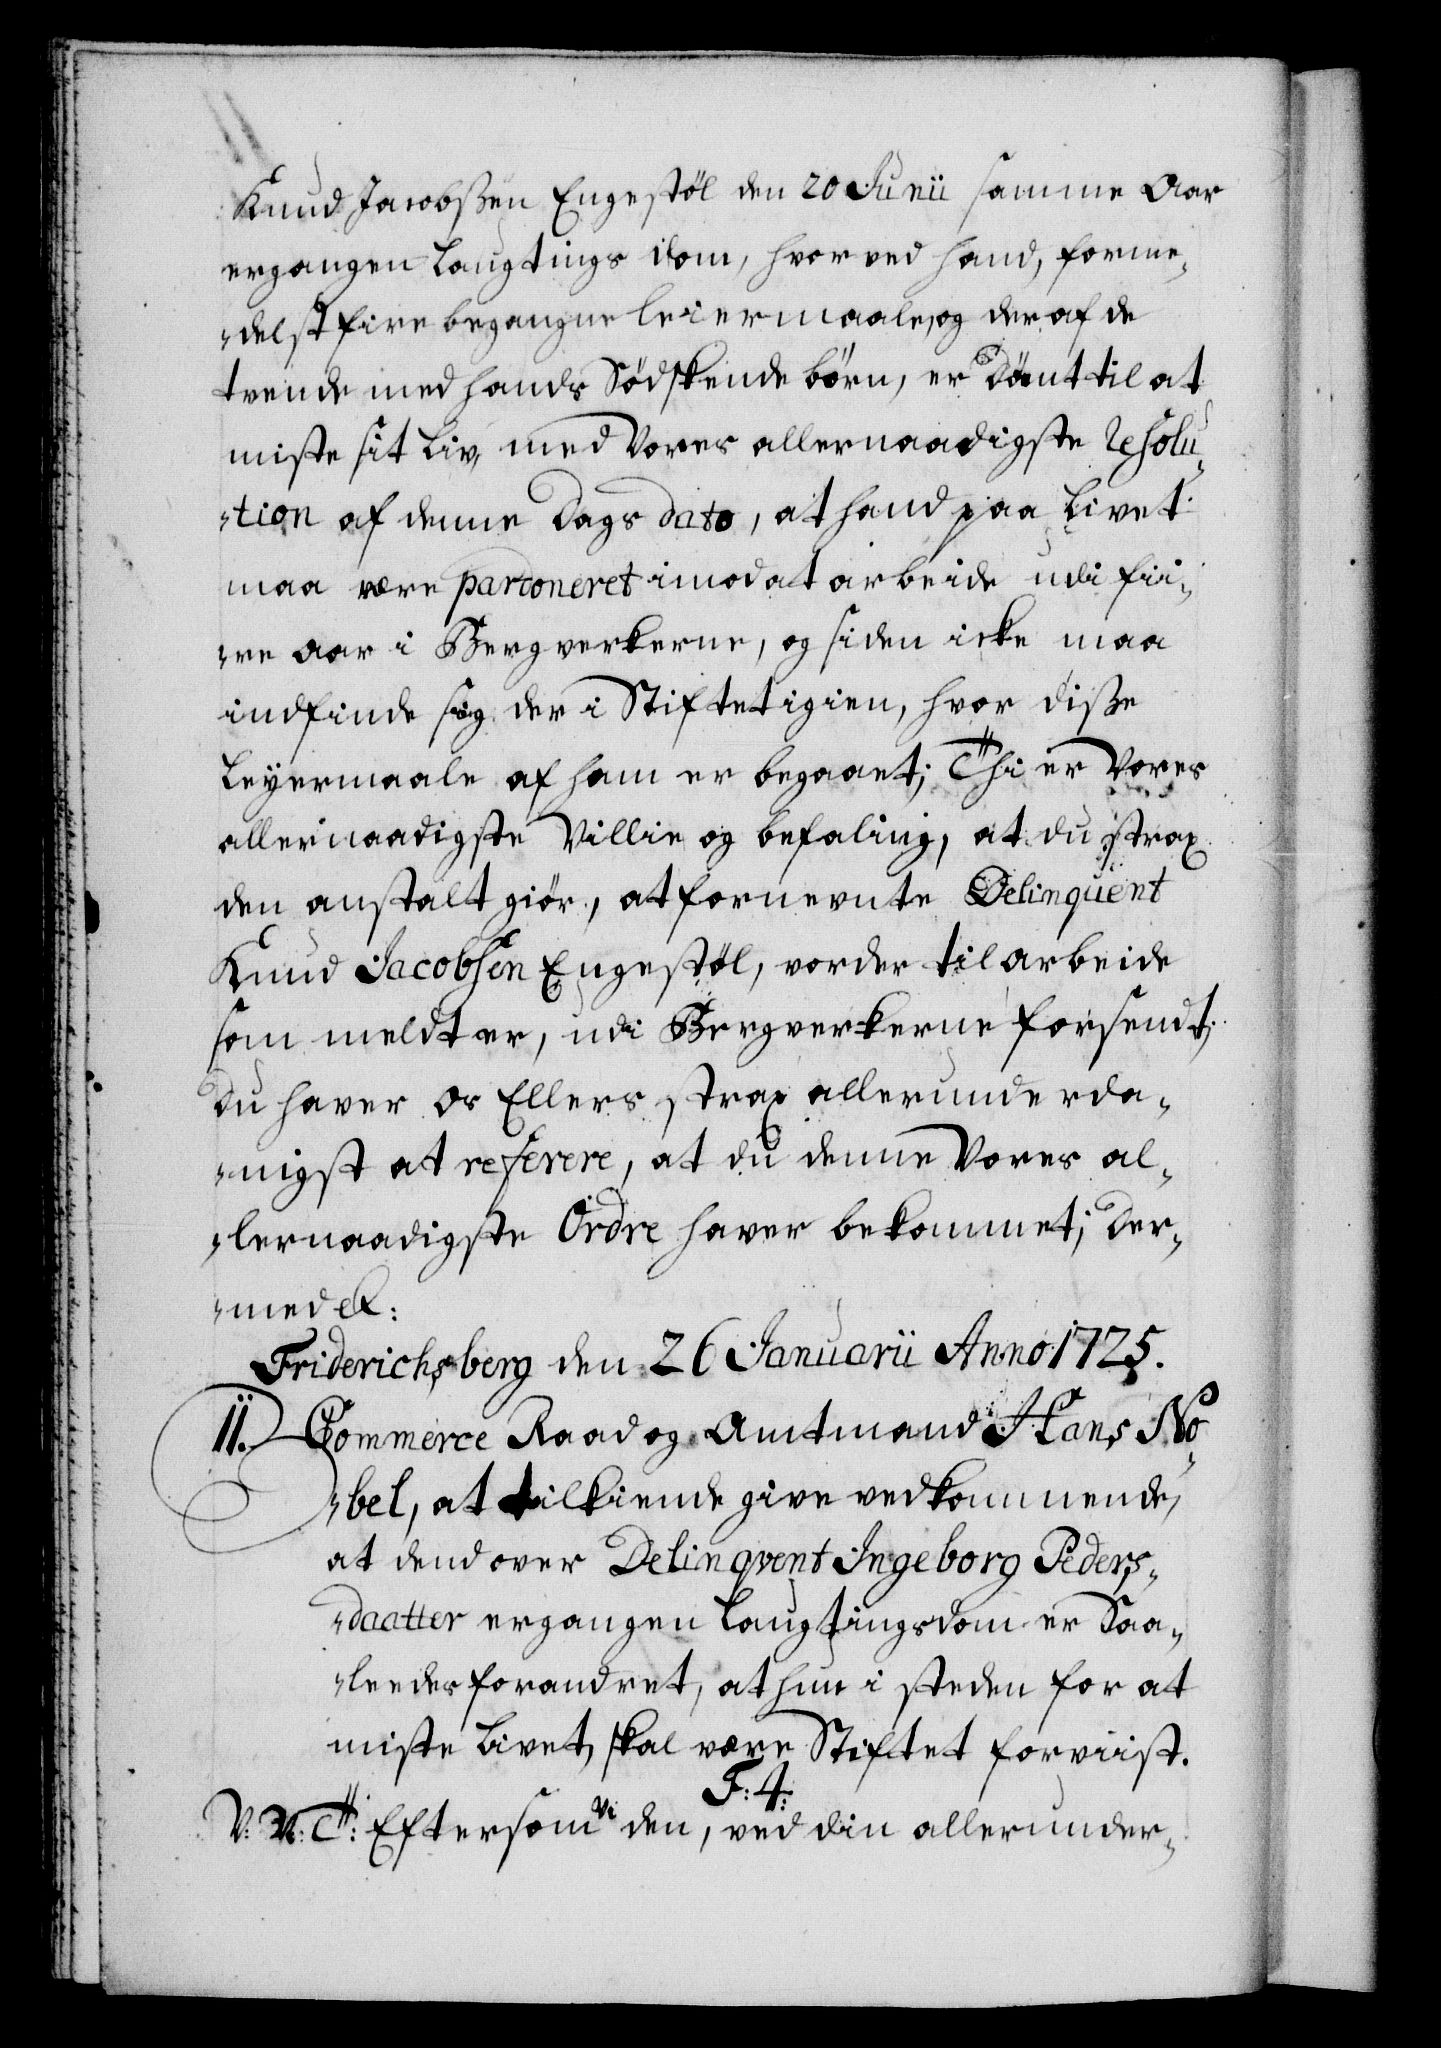 Knud Jacobsßen Engestøl den 20 Junii samme Aar
ergangen Laugtings dom, hvor ved hand, forme,,
,,delst fire begangne leiermaale, og der af de
trende med hands Södskende börn, er Dömt til at
miste sit Liv, med Vores allernaadigste Resolu,,
,,tion af denne Dags dato, at hand paa Livet
maa være pardoneret imod at arbeide udi fii,,
,,re aar i Bergverkerne, og siden icke maa
indfinde sig der i Stiftet igien, hvor diße
Leÿermaale af ham er begaaet; Thi er Vores
allernaadigste Villie og befaling, at du strax
den anstalt giör, at fornevnte Delinquent
Knud Jacobsen Engestøl, vorder til arbeide
som meldt er, udi Bergverkerne forsendt;
Du haver os Ellers strax allerunderda,,
,,nigst at referere, at du denne Vores al,,
,,lernaadigste Ordre haver bekommet; Der,,
,,med &:
Friderichsberg den 26 Januarii Anno 1725.
11. Commerce Raad og Amtmand Hans No,,
,,bel, at tilkiende give vedkommende,
at dend over Delinqvent Ingeborg Peders,,
,,daatter ergangen Laugtingsdom er Saa,,
,,leedes forandret, at hun i steden for at
miste Livet, skal være Stiftet forviist.
F: 4:
V: V: T: Eftersom Vi den, ved din allerunder,,